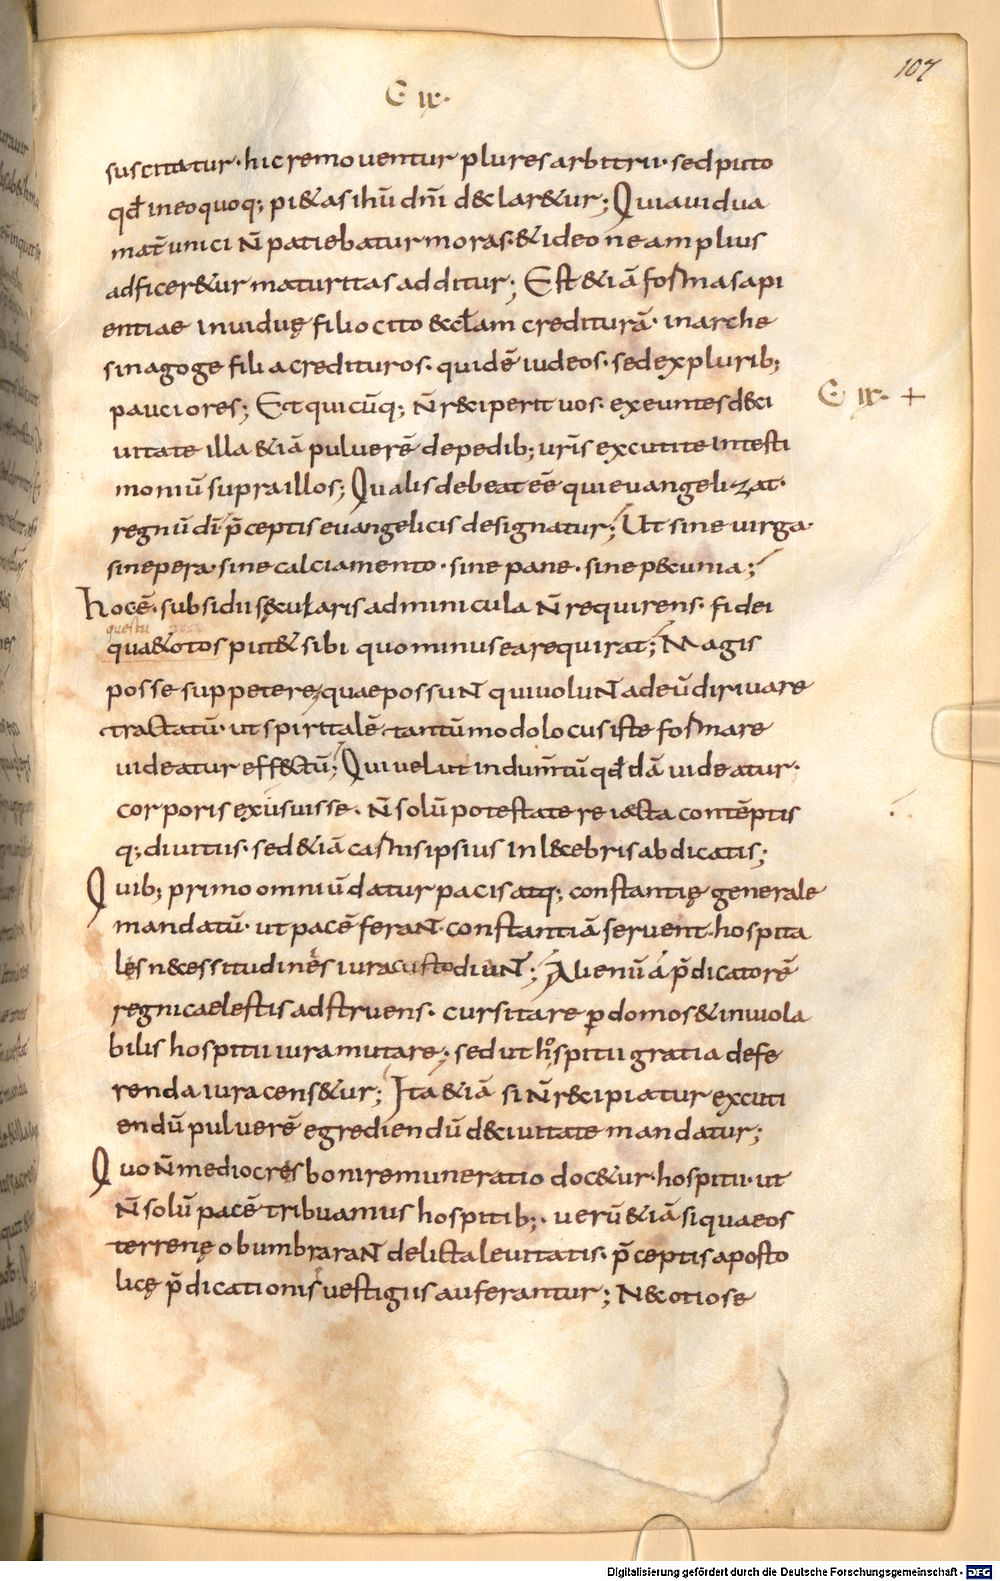 107
C· IX·
suscitatur· hic removentur plures arbitrii· sed puto
qđ in eo quoq; pi&as ihū dn̄i declar&ur; Quia uidua
mat̄ unici n̄ patiebatur moras· & ideo ne amplius
adficer&ur maturitas additur; Est &iā forma sapi
entiae in uiduę filio cito eccl̄am crediturā· in arche
sinagoge filia credituros· quidē iudeos· sed ex plurib;
pauciores; Et quicūq; n̄ reciperit uos· exeuntes de ci
C· IX· +
uitate illa &iā puluerē de pedib; ur̄is excutite in testi
moniū supra illos; Qualis debeat eē qui euangelizat·
regnū dī p̄ceptis euangelicis designatur; Ut sine uirga·
sine pera· sine calciamento· sine pane· sine pecunia;
hoc ē· subsidii sęcularis adminicula n̄ requirens· fidei
questu
qua&otos put& sibi quo minus ea requirat; Magis
posse suppetere, quae possunt qui uolunt ad eū diriuare
tractatū· ut spiritalē tantūmodo locus iste formare
uideatur effectū; Qui uelut indum̄tū qđdā uideatur·
corporis exuisuisse· n̄ solū potestate reiecta contēptis
q; diuitiis· sed &iā carnis ipsius inlecebris abdicatis;
Quib; primo omniū datur pacis atq; constantię generale
mandatū· ut pacē ferant· constantiā seruent· hospita
lęs necessitudinēs iura custodiunt; Alienū á p̄dicatorē
regni caelestis adstruens· cursitare p domos & inuiola
bilis hospitii iura mutare· sed ut hospitii gratia defe
renda iura cens&ur; Ita &iā si n̄ recipiatur excuti
endū puluerē egrediendū de ciuitate mandatur;
Quo n̄ mediocres boni remuneratio doc&ur· hospitii· ut
n̄ solū pacē tribuamus hospitib;· uerū &iā si qua eos
terrenę obumbrarant delicta leuitatis· p̄ceptis aposto
licę p̄dicationis uestigiis auferantur; Nec otiose
Digitalisierung gefördert durch die Deutsche Forschungsgemeinschaft - DFG